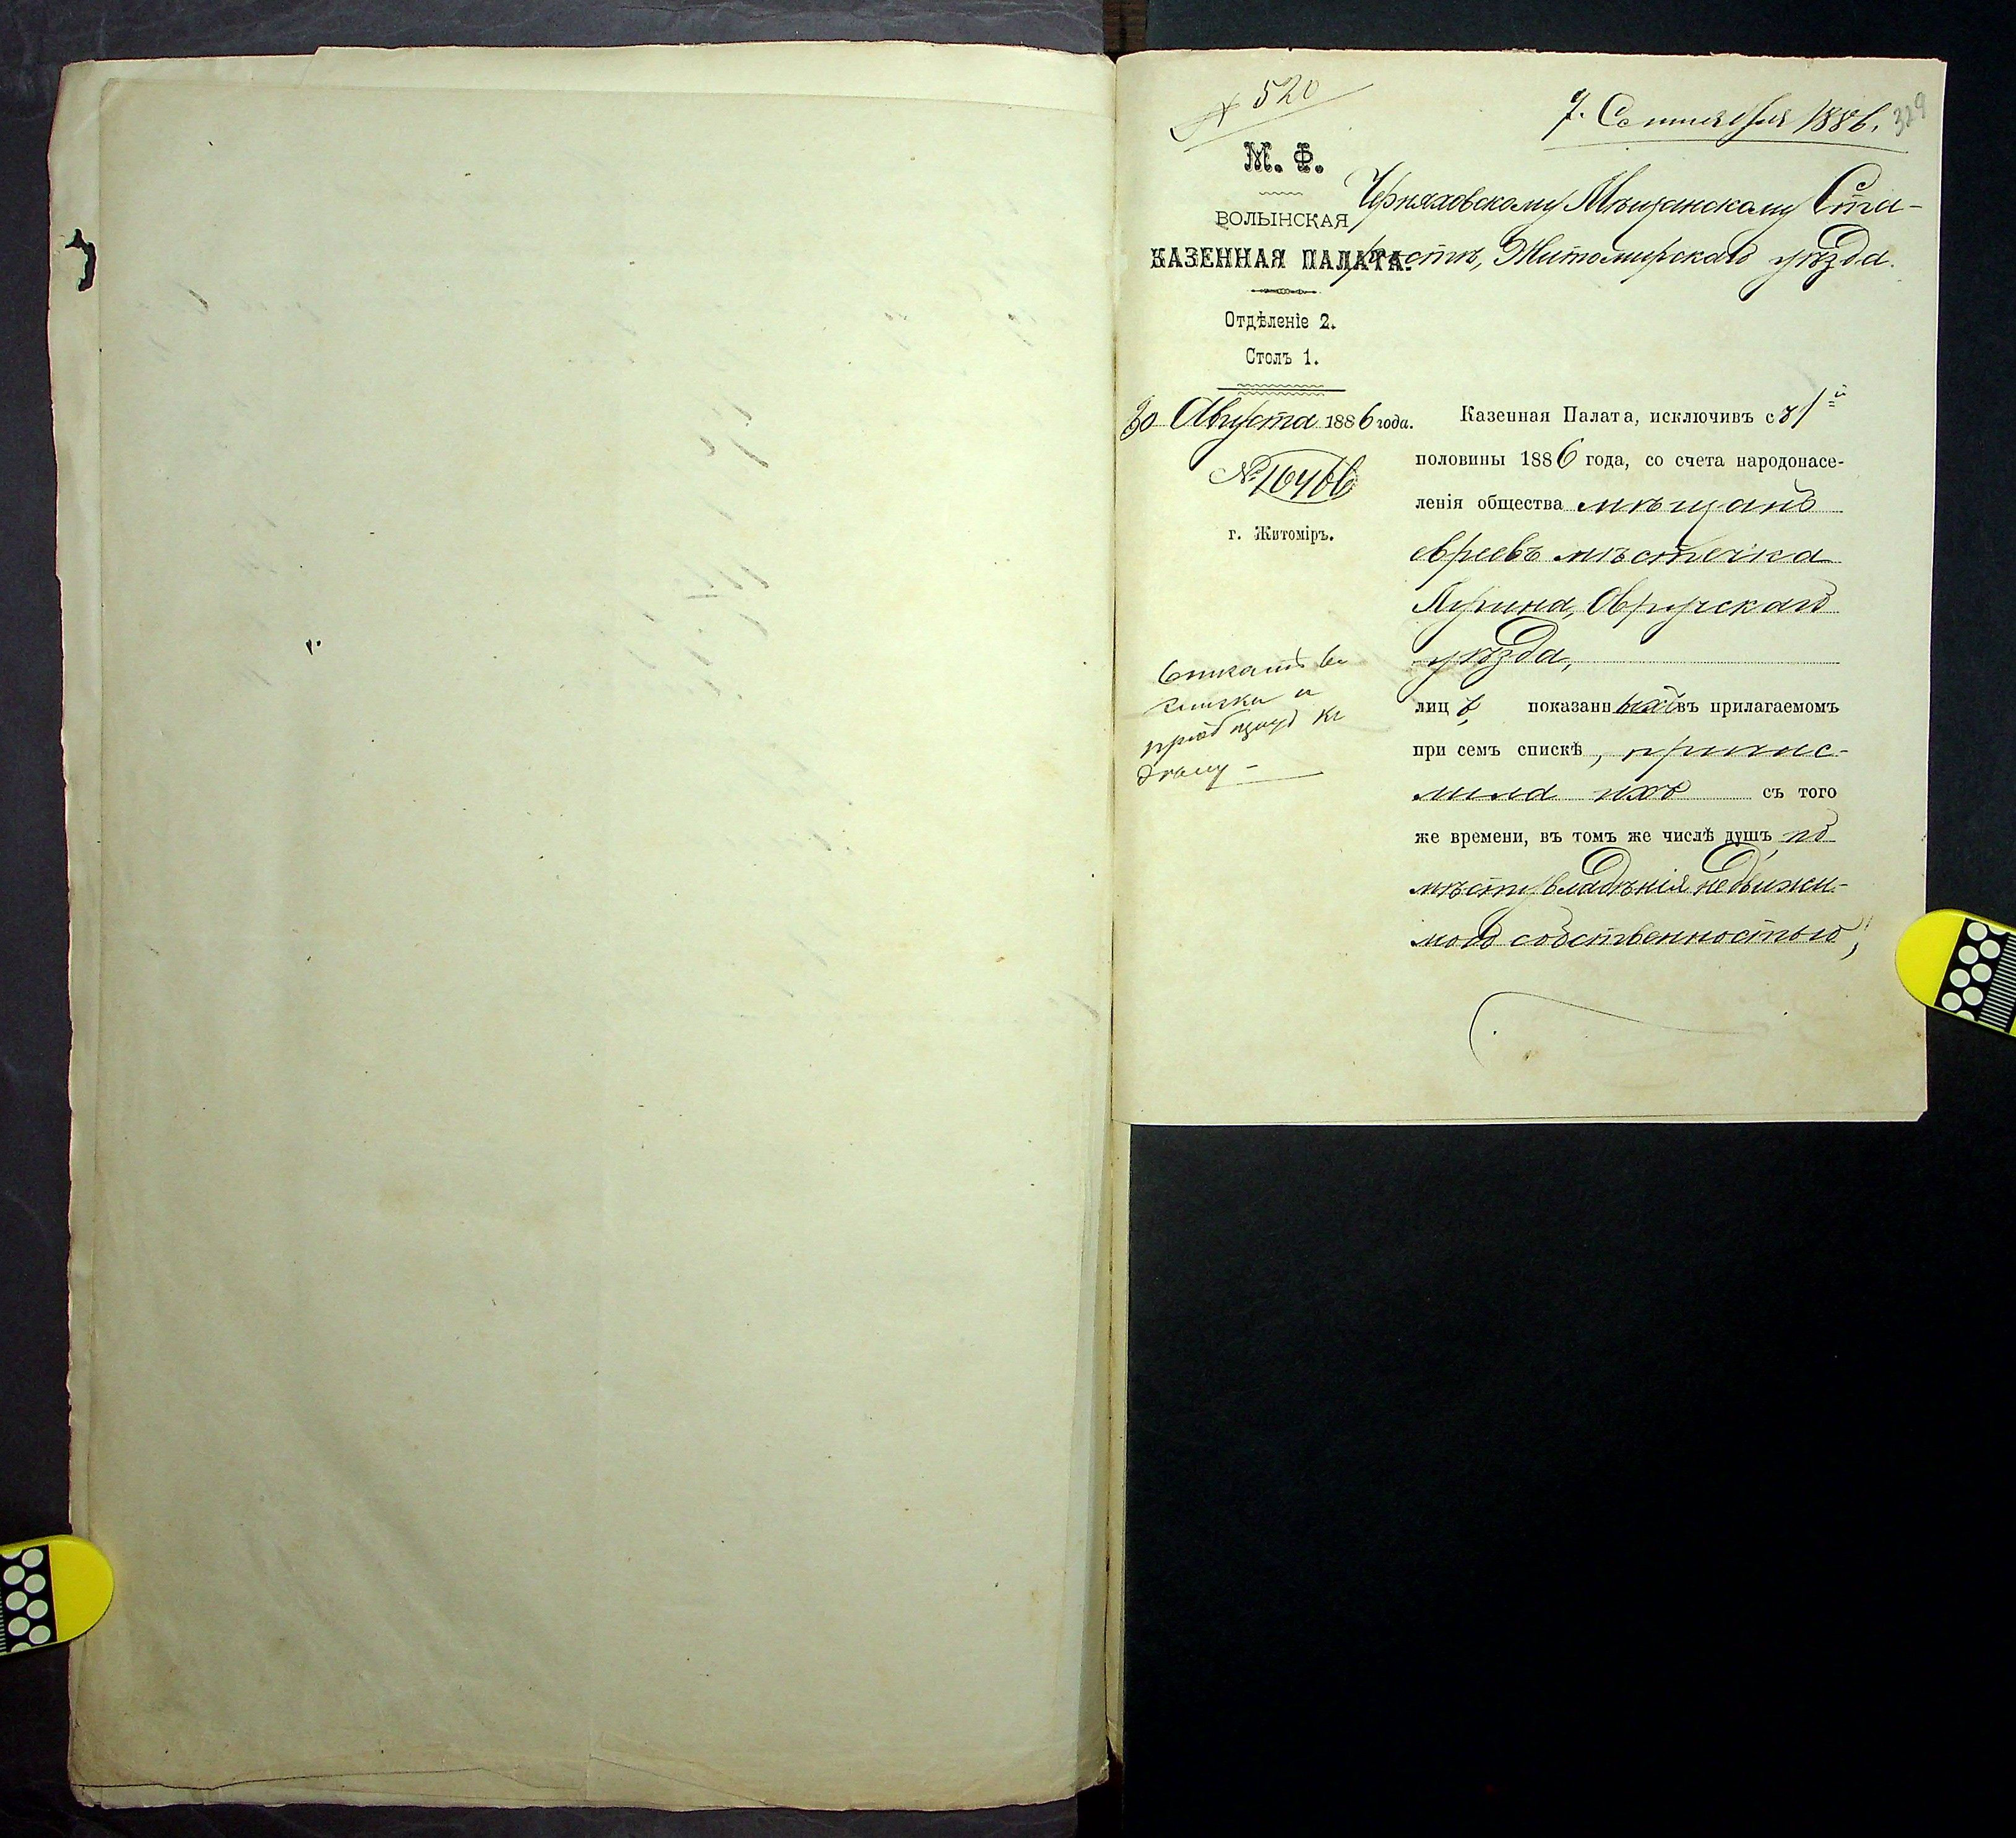 № 520
7. Сентября 1886.
329
М. Ф.
ВОЛЫНСКАЯ
КАЗЕННАЯ ПАЛАТА.
Отдѣленіе 2.
Столъ 1.
30 Августа 1886 года.
№ 10466
г. Житоміръ.
къ
Черняховскому Мѣщанскому Ста-
ростѣ, Житомирскаго уѣзда.
Казенная Палата, исключивъ съ 1й
половины 1886 года, со счета народонасе-
ленія общества мѣщанъ
евреевъ мѣстечка
Лугина, Овручскаго
уѣзда,
лицъ показанныхъ въ прилагаемомъ
при семъ спискѣ, причис-
лила ихъ съ того
же времени, въ томъ же числѣ душъ, по
мѣсту владѣнія недвижи-
мою собственностью,